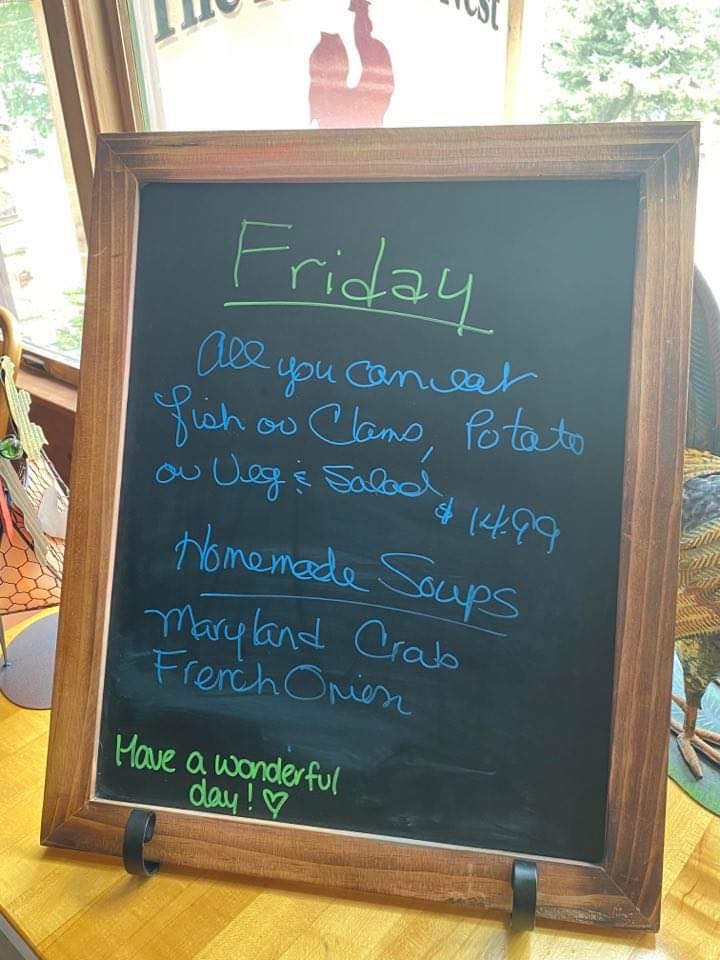 The
est
Friday
All you can eat
fish or Clams, Potato
or Veg & Salad
$14.99
Homemade Soups
Maryland Crab
French Onion
Have a wonderful
day! ♡